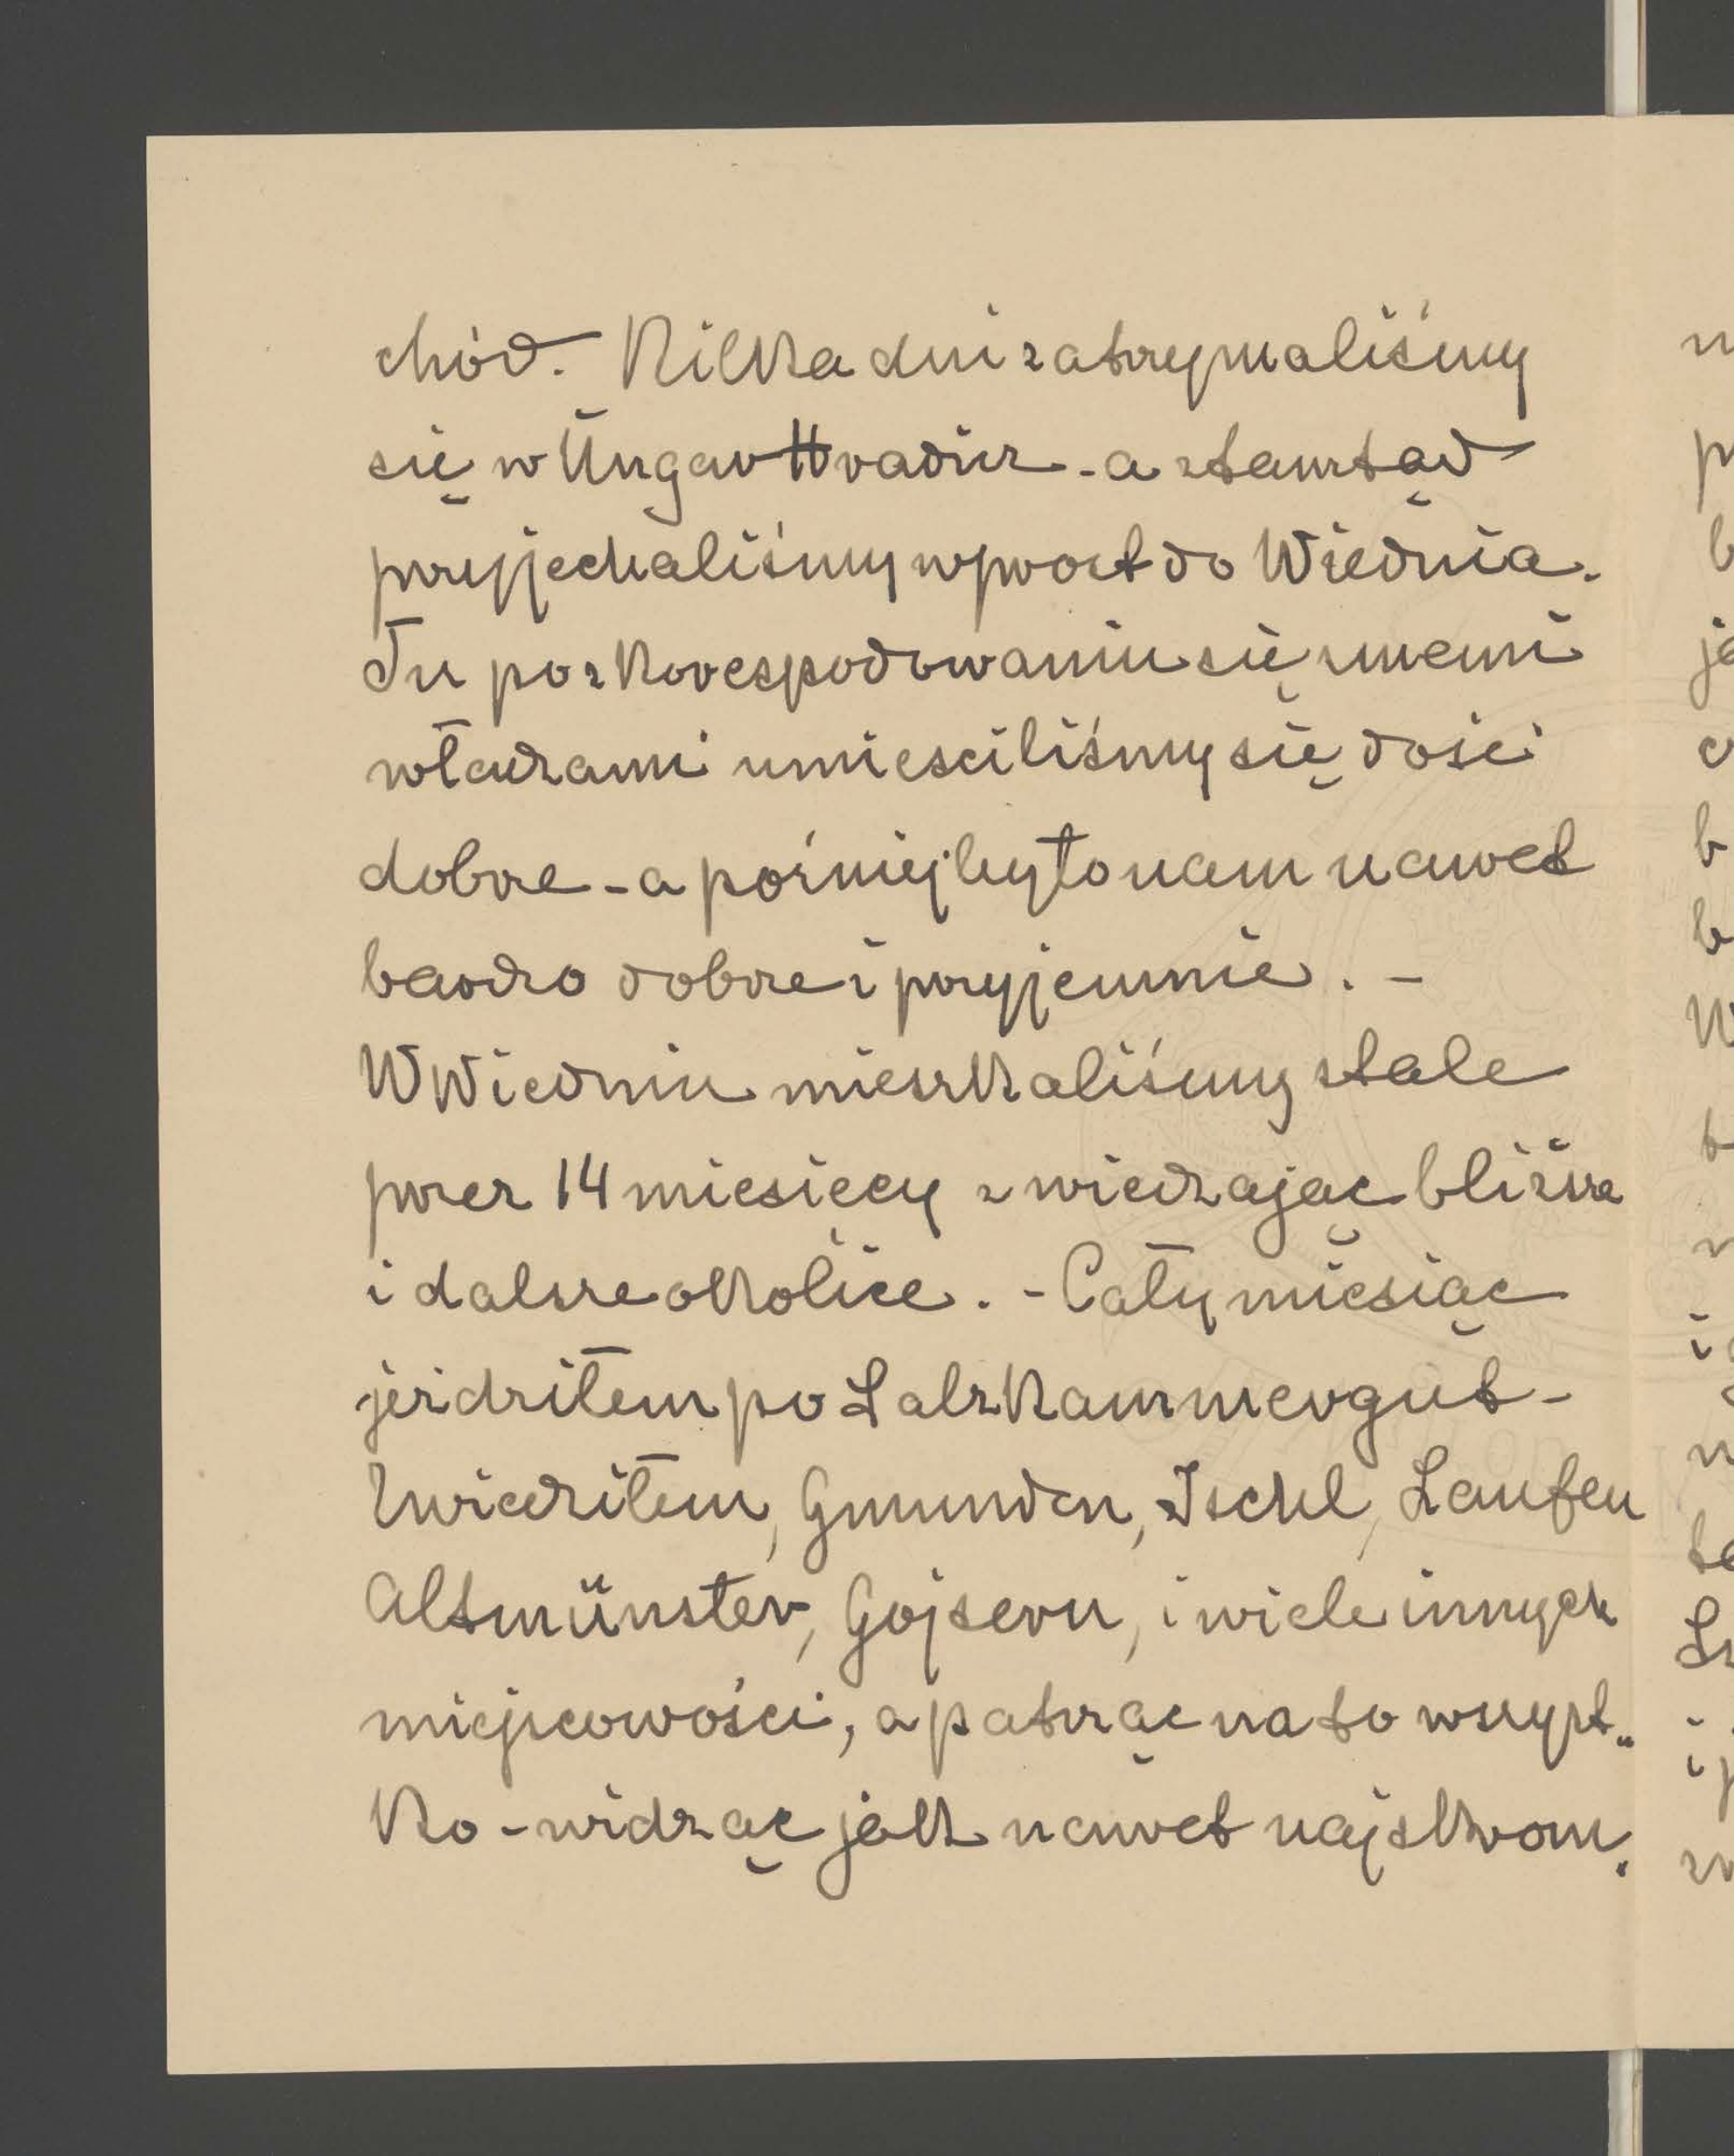 chód. Kilka dni zatrzymaliśmy
się w Ungar Hradisz - a stamtąd
przyjechaliśmy wprost do Wiednia.
Tu po zkorespodowaniu się z memi
władzami umieściliśmy się dość
dobrze - a poźniej było nam nawet
bardzo dobrze i przyjemnie. -
W Wiedniu mieszkaliśmy stale
przez 14 miesięcy zwiedzając bliższe
i dalsze okolice. - Cały miesiąc
jeździłem po Salzkammergut -
Zwiedziłem, Gmunden, Ischl, Laufen
Altmünster, Gojsern, i wiele innych
miejscowości, a patrząc na to wszyst„
ko - widząc jak nawet najskrom.